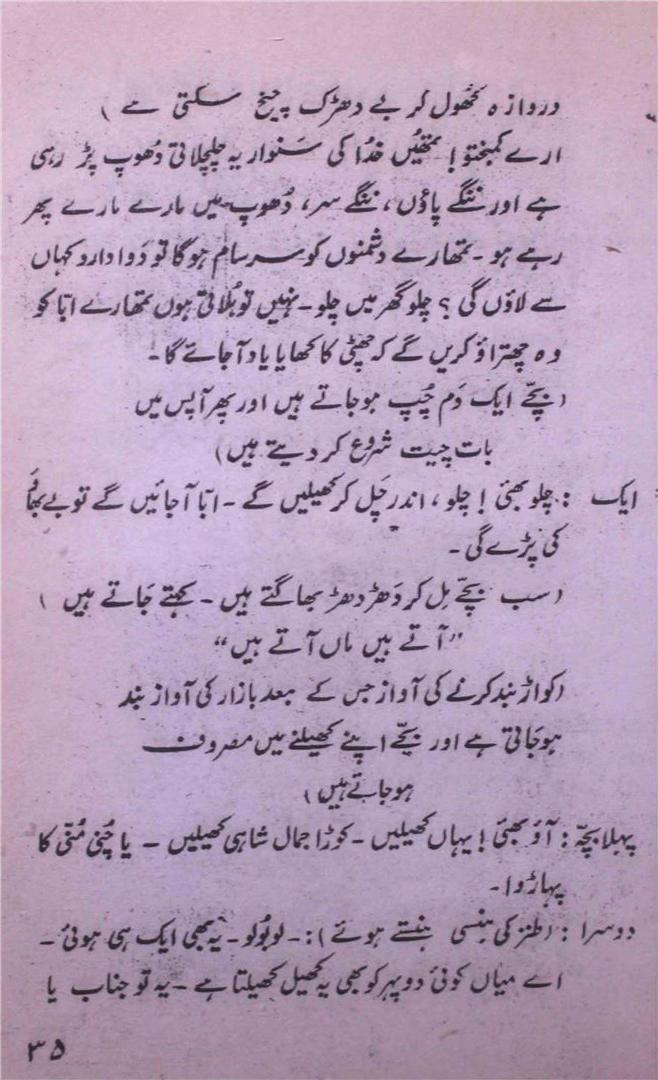 دروازہ کھول کر بے دھڑک چیخ سکتی ہے )
ارے کمبختو! تمھیں خدُا کی سَنوار یہ چلچلاتی دُھوپ پڑ رہی
ہے اور ننگے پاؤں، ننگے سر، دُھوپ میں مارے مارے پھر
رہے ہو۔ تمھارے دشمنوں کو سرسام ہوگا تو دَوا دارو کہاں
سے لاؤں گی؟ چلو گھر میں چلو۔ نہیں تو بُلاتی ہوں تمھارے ابّا کو
وہ چھتراؤ کریں گے کہ چھٹی کا کھایا یاد آجائے گا۔
(بچّے ایک دَم چُپ ہوجاتے ہیں اور پھر آپس میں
بات چیت شروع کر دیتے ہیں)
ایک : چلو بھئی! چلو، اندر چَل کر کھیلیں گے۔ ابّا آجائیں گے تو بے بھاؤ
کی پڑے گی۔
(سب بچّے مِل کر دَھڑ دھڑ بھاگتے ہیں۔ کہتے جَاتے ہیں )
”آتے ہیں ماں آتے ہیں“
(کواڑ بند کرنے کی آواز جس کے بعد بازار کی آواز بند
ہوجَاتی ہے اور بچّے اپنے کھیلنے میں مصروف
ہوجاتے ہیں)
پہلا بچّہ : آؤ بھئی! یہاں کھیلیں۔ کوڑا جمال شاہی کھیلیں۔ یا چُنّی مُنّی کا
پہاڑوا۔
دوسرا : (طنز کی ہنسی ہنستے ہوئے):۔ لو بُولو۔ یہ بھی ایک ہی ہوئی۔
اے میاں کوئی دوپہر کو بھی یہ کھیل کھیلتا ہے۔ یہ تو جناب یا
۳۵